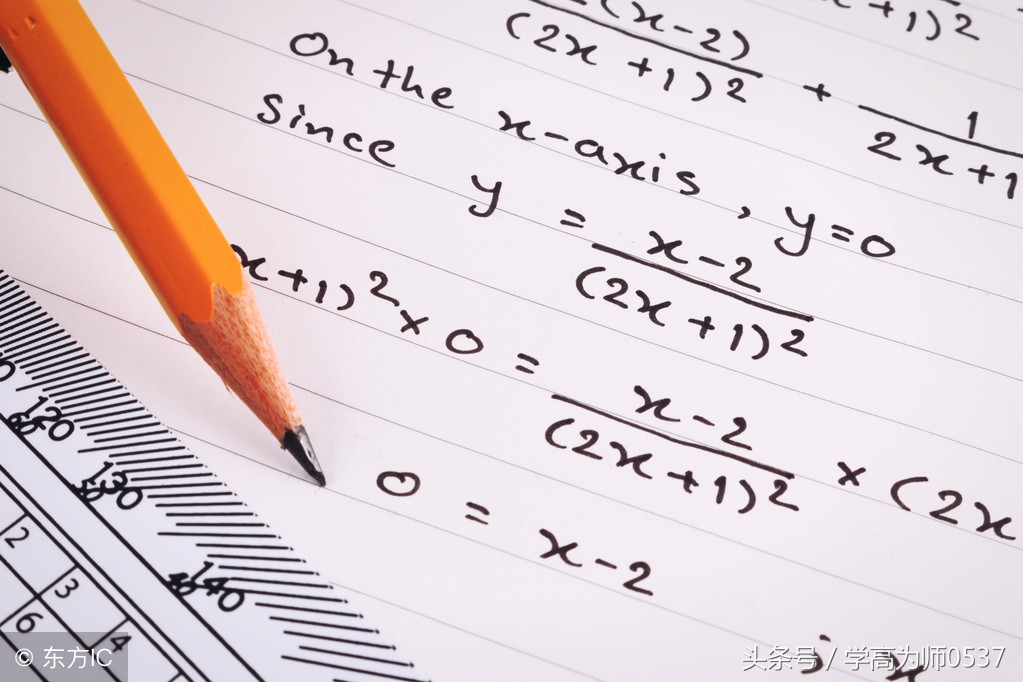 (x-2)
(2x+1)²
+
1
2x+1
x+1)²
On the x-axis, y=0
Since y = x-2
(2x+1)²
x+1)² × 0 = x-2
(2x+1)²
× (2x
0 = x-2
120
130
140
2
3
4
6
© 东方IC
头条号 / 学高为师0537